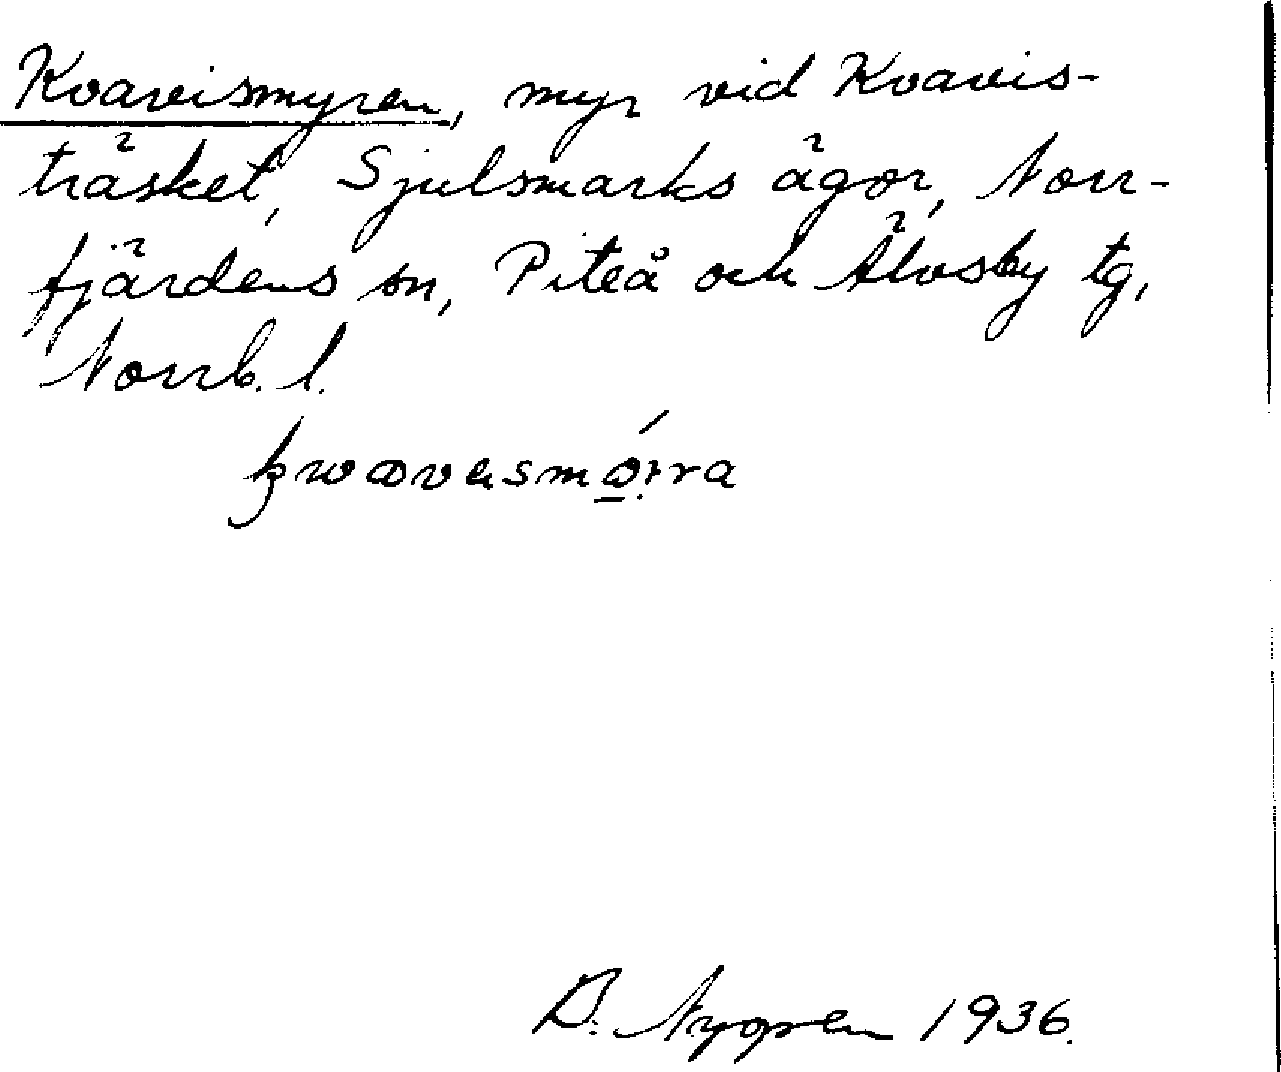 Kvavismyren, myr vid Kvavis-
träsket, Sjulsmarks ägor, Norr-
fjärdens sn, Piteå och Älvsby tg,
Norrb. l.
B. Nygren 1936.